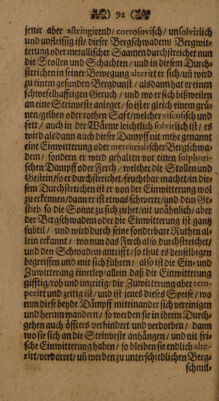 92
jener aber astringirend / corrosivisch / unsolvirlich
und unflüssig ist / dieser Bergschwadem Bergwit-
terung oder metallischer Saamen durchstreichet nun
die Stollen und Schachten / und in diesem Durch-
streichen in seiner Bewegung alterirt er sich / uñ wird
zu einem gesunden Bergdunst / alsdann hat er einen
schwefelhafftigen Geruch / und wo er sich bißweilen
an eine Steinveste anleget / so ist er gleich einem grü-
nen / gelben oder rothen Safft / welcher viscosisch und
fett / auch in der Wärme leichtlich solvirisch ist / es
wird alsdann auch dieser Dampff nit mehr genannt
eine Einwitterung oder mercurialischer Bergschwa-
dem / sondern er wird gehalten vor einen sulphuri-
schen Dampff oder Ferch / welcher die Stollen und
Gestein / so er durchstreichet / fruchtbar machet / in die-
sem Durchstreichen ist er von der Einwitterung wol
zu erkennen / dann er ist etwas schwerer / und dem Ge-
strieb so die Sonne zu sich ziehet / nit unähnlich / aber
der Bergschwadem oder die Einwitterung ist gantz
subtil / und wird durch seine sonderbare Ruthen al-
lein erkannt / wo nun das Ferch also durchstreichet /
und den Schwadem antrifft / so thut es denselbigen
begreiffen und mit sich führen / also ist die Ein- und
Zuwitterung einerley allein daß die Einwitterung
gifftig / roh und unzeitig / die Zuwitterung aber tem-
perirt und zeitig ist / und ist jenes dieses Speise / wo
nun diese beyde Dämpff miteinander sich vereinigen
und herum wandern / so werden sie in ihrem Durch-
gehen auch öffters verhindert und verdorben / dann
wo sie sich an die Steinveste anhängen / und nit fri-
sche Einwitterung haben / so bleiben sie endlich alte-
rirt / verdorret / uñ werden zu unterschiedlichen Berg-
schmit-